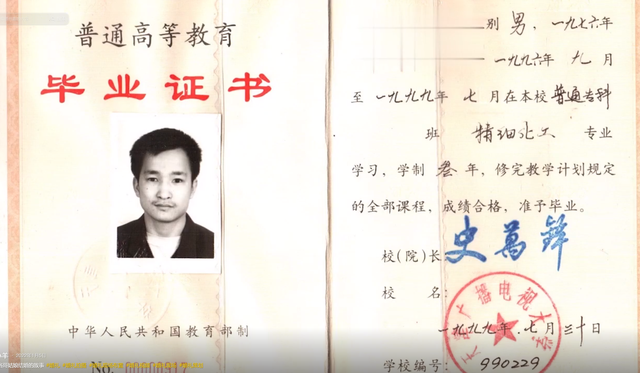 普通高等教育
毕业证书
中华人民共和国教育部制
No.
别 男，一九七六年
一九九六年 九 月
至 一九九九年 七 月在本校 普通专科
班 精细化工 专业
学习，学制 叁 年，修完教学计划规定
的全部课程，成绩合格，准予毕业。
校(院)长 史萬鋒
校 名：
广播电视大
一九九九年 七 月 三十日
学校编号： 990229